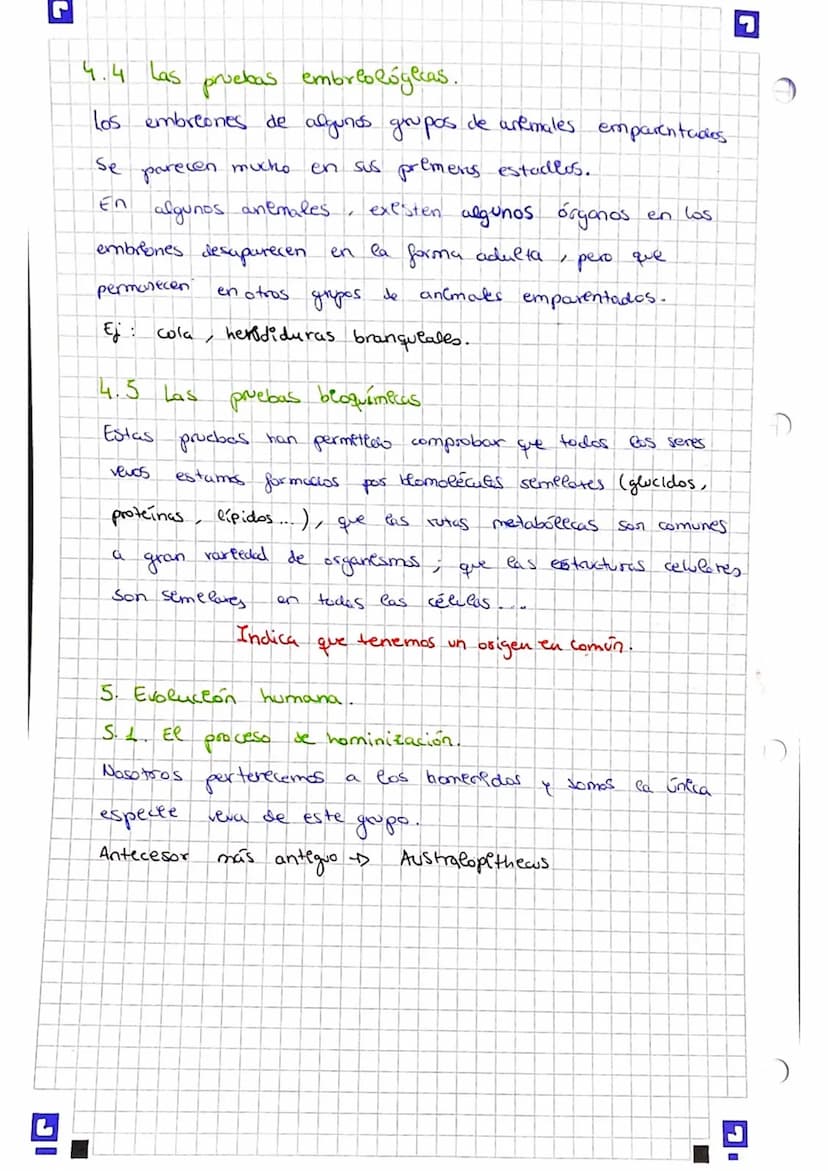 4.4 Las pruebas embriológicas.
Los embriones de algunos grupos de animales emparentados
se parecen mucho en sus primeros estadios.
En algunos animales, existen algunos órganos en los
embriones desaparecen en la forma adulta, pero que
permanecen en otros grupos de animales emparentados.
Ej: cola, hendiduras branquiales.
4.5 Las pruebas bioquímicas
Estas pruebas han permitido comprobar que todos los seres
vivos estamos formados por biomoléculas semejantes (glúcidos,
proteínas, lípidos...), que las rutas metabólicas son comunes
a gran variedad de organismos; que las estructuras celulares
son similares en todas las células...
Indica que tenemos un origen en común.
5. Evolución humana.
5.1. El proceso de hominización.
Nosotros pertenecemos a los homínidos y somos la única
especie viva de este grupo.
Antecesor más antiguo → Australopithecus